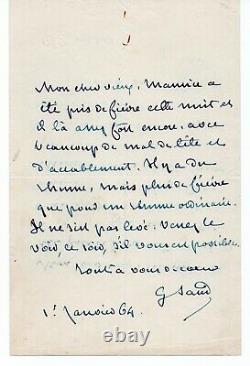 Mon cher vieux, Maurice a
été pris de fièvre cette nuit et
il l'a assez fort encore, avec
beaucoup de mal de tête et
d'accablement. Il y a du
rhume, mais plus de fièvre
que pour un rhume ordinaire.
Il ne s'est pas levé. Venez le
voir, ce soir, s'il vous est possible.
Tout à vous de cœur
G Sand
1er Janvier 64.